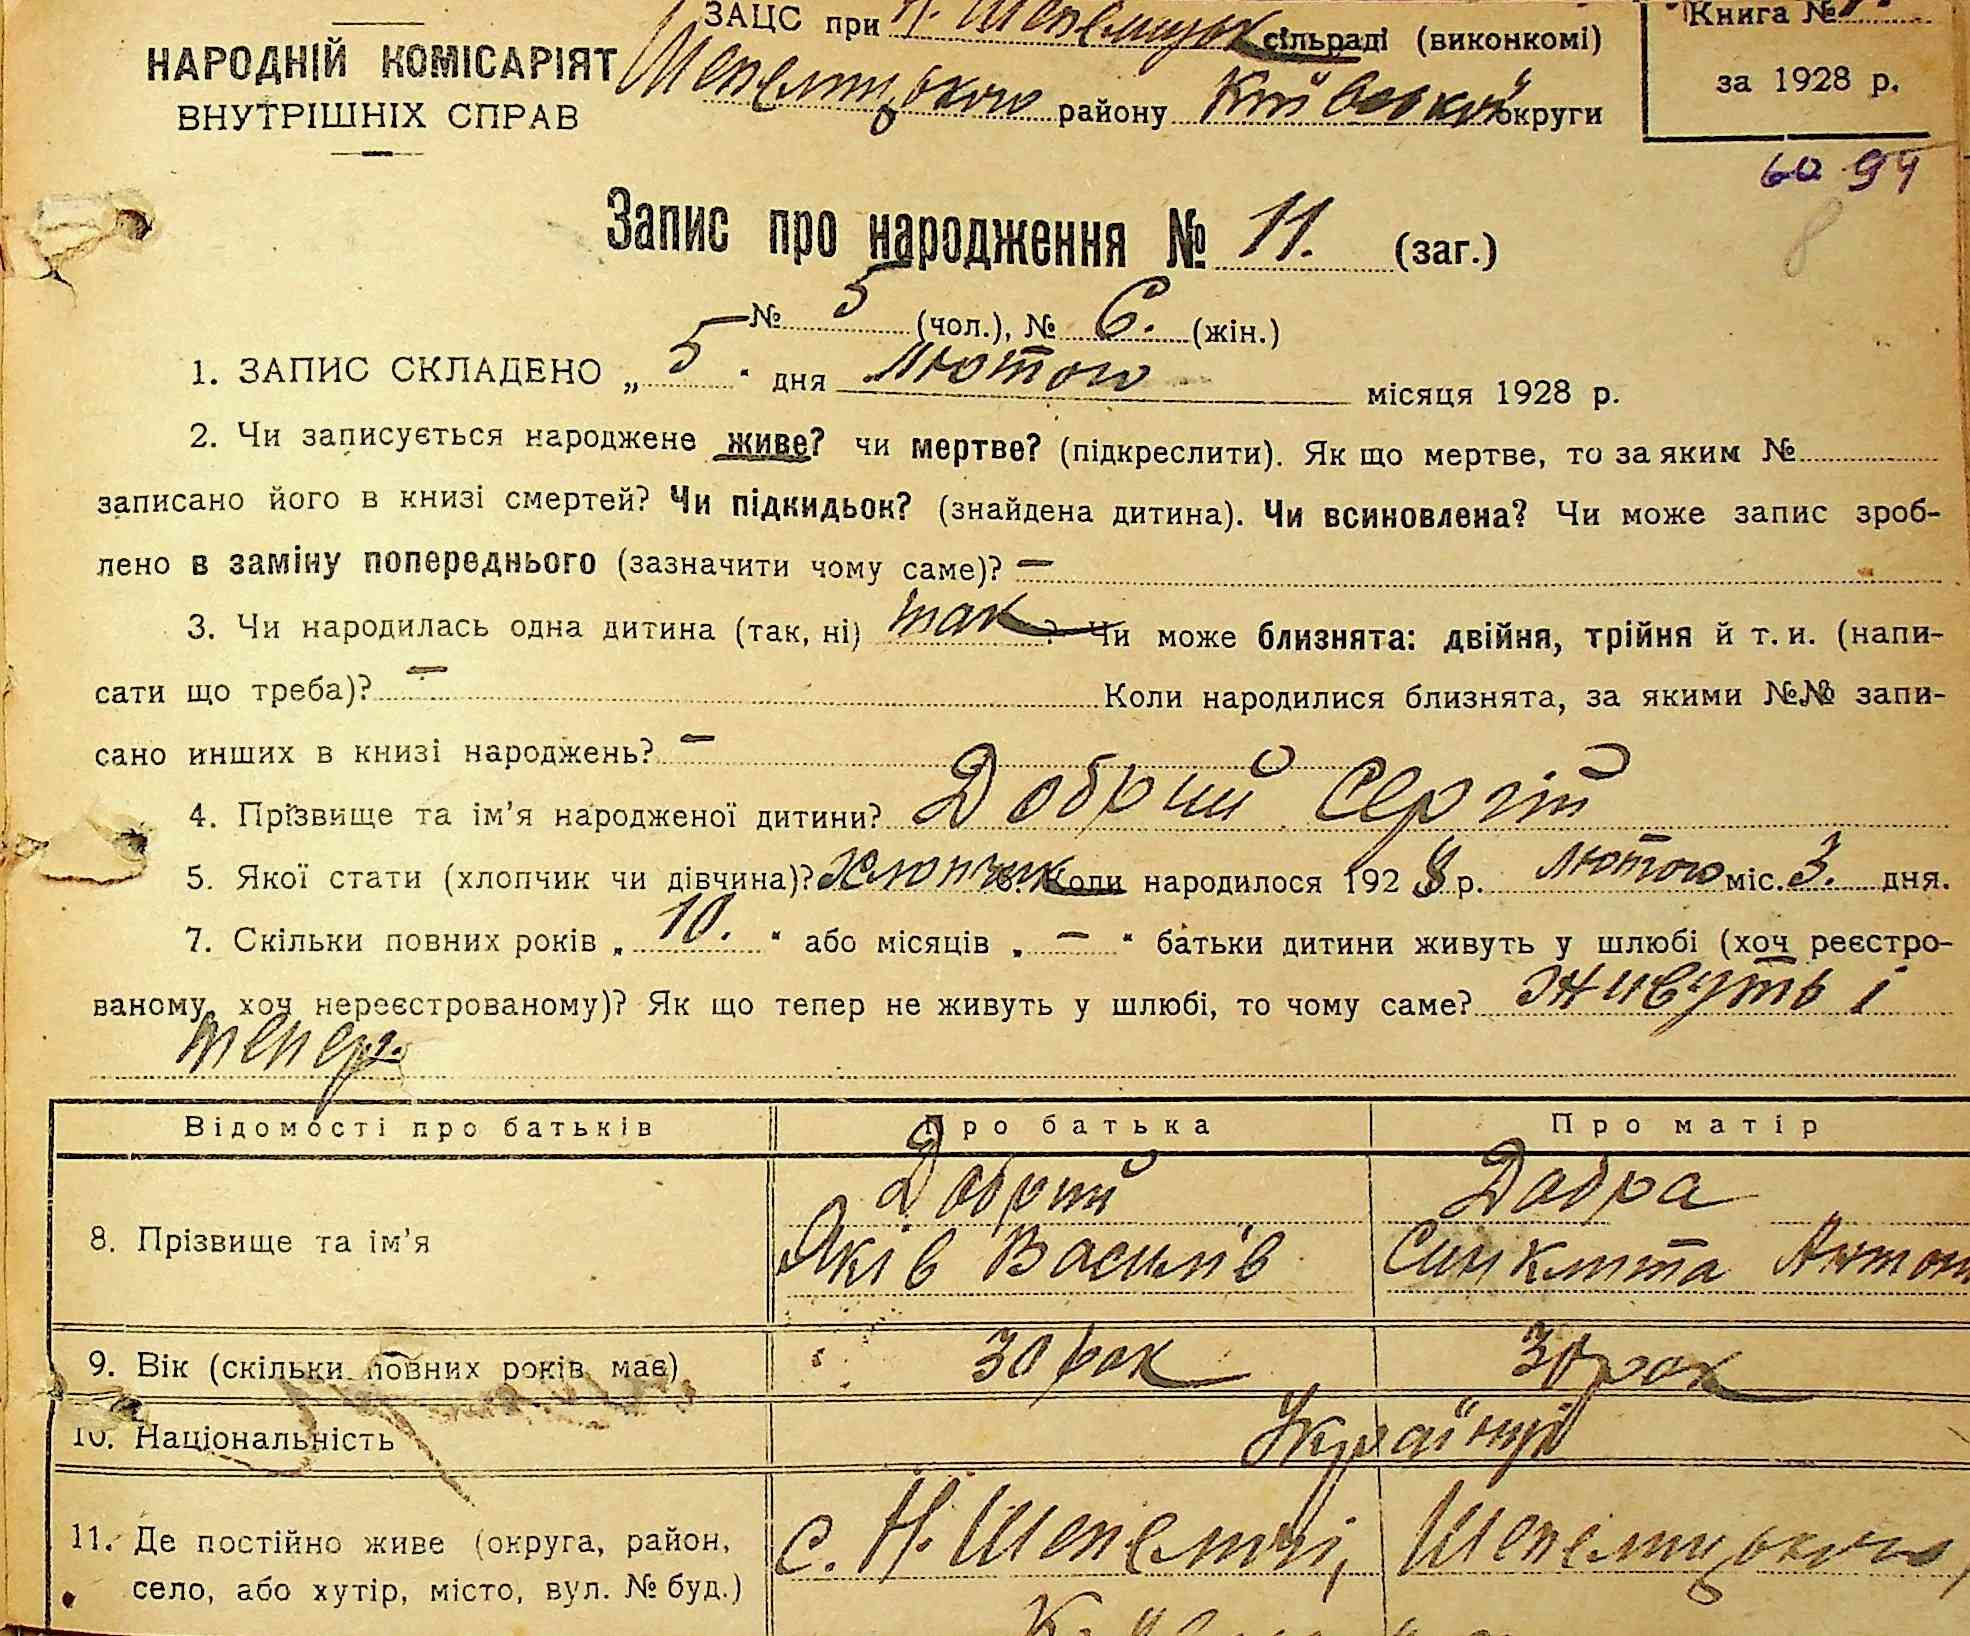 ЗАЦС при Н. Шепелицькій сільраді (виконкомі)
Книга №
НАРОДНІЙ КОМІСАРІЯТ
ВНУТРІШНІХ СПРАВ
Шепелицького району Київської округи
за 1928 р.
60 94
8
Запис про народження № 11. (заг.)
№ 5 (чол.), № 6. (жін.)
1. ЗАПИС СКЛАДЕНО „ 5 “ дня лютого місяця 1928 р.
2. Чи записується народжене живе? чи мертве? (підкреслити). Як що мертве, то за яким №
записано його в книзі смертей? Чи підкидьок? (знайдена дитина). Чи всиновлена? Чи може запис зроб-
лено в заміну попереднього (зазначити чому саме)? —
3. Чи народилась одна дитина (так, ні) так ? Чи може близнята: двійня, трійня й т. и. (напи-
сати що треба)? — Коли народилися близнята, за якими №№ запи-
сано инших в книзі народжень? —
4. Прізвище та ім’я народженої дитини? Добрий Сергій
5. Якої стати (хлопчик чи дівчина)? Хлопчик 6. Коли народилося 1928 р. лютого міс. 3. дня.
7. Скільки повних років „ 10. “ або місяців „ — “ батьки дитини живуть у шлюбі (хоч реєстро-
ваному, хоч нереєстрованому)? Як що тепер не живуть у шлюбі, то чому саме? живуть і
тепер.
Відомості про батьків Про батька Про матір
Добрий Добра
8. Прізвище та ім’я Яків Василів Синклита Антон
9. Вік (скільки повних років має) 30 рок 30 рок
10. Національність Українці
11. Де постійно живе (округа, район, с. Н. Шепеличі, Шепелицького,
село, або хутір, місто, вул. № буд.)